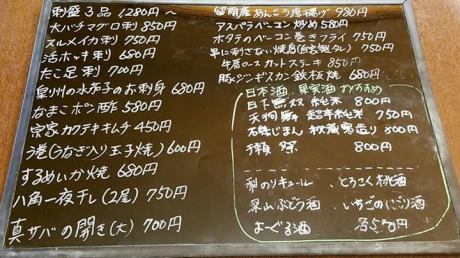 刺盛3品 1,280円〜
大バチマグロ刺 850円
スルメイカ刺 750円
活ホッキ刺 680円
たこ足刺 700円
泉州の水茄子のお刺身 680円
なまこポン酢 580円
宗家カクテキキムチ 450円
う巻(うなぎ入り玉子焼) 600円
するめいか焼 680円
八角一夜干し(2尾) 750円
真サバの開き(大) 700円
留萌産あんこう唐揚げ 980円
アスパラベーコン炒め 580円
ホタテのベーコン巻きフライ 750円
串に刺さない焼鳥(自家製タレ) 750円
牛肩ロースカットステーキ 850円
豚ジンギスカン鉄板焼 680円
日本酒、果実酒おすすめ
日下無双 純米 800円
天狗舞 超辛純米 750円
石鎚 800円
獺祭 800円
梨のリキュール 、とろこく桃酒
深山ぶどう酒 、いちごのにごり酒
よーぐる酒 各570円